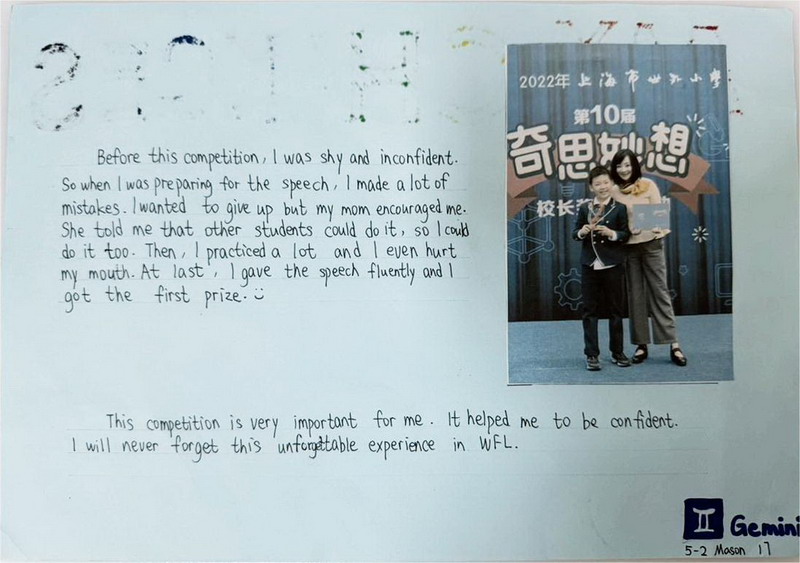 Before this competition, I was shy and inconfident.
So when I was preparing for the speech, I made a lot of
mistakes. I wanted to give up but my mom encouraged me.
She told me that other students could do it, so I could
do it too. Then, I practiced a lot and I even hurt
my mouth. At last, I gave the speech fluently and I
got the first prize.
2022年上海市世外小学
第10届
奇思妙想
校长
This competition is very important for me. It helped me to be confident.
I will never forget this unforgettable experience in WFL.
Gemini
5-2 Mason 17